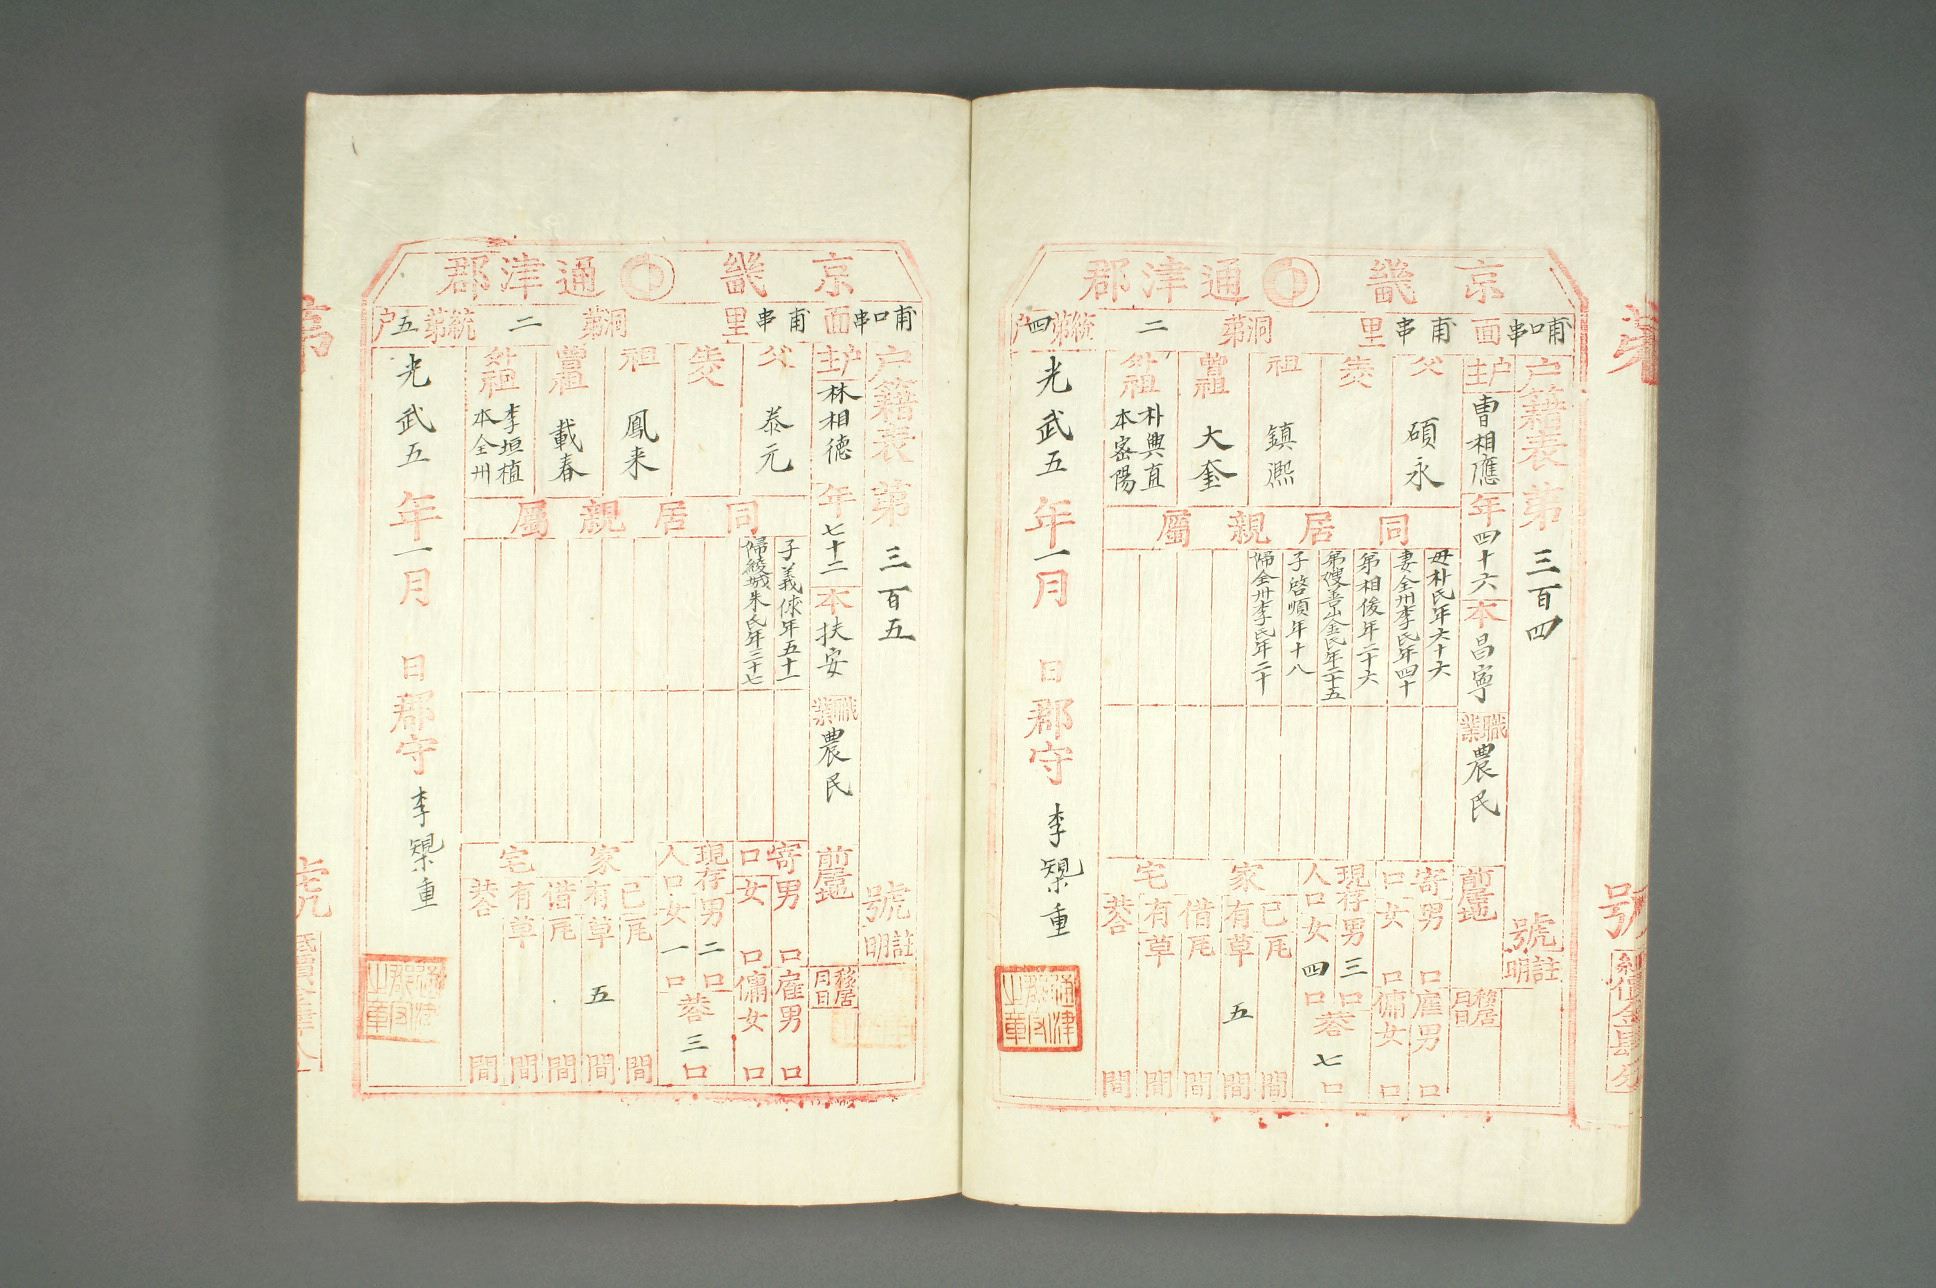 京畿 通津郡
甫口串面 甫串里 洞第 二 統第 四 户
户籍表 第 三百四 號
註明
户主 曺相應 年 四十六 本 昌寧 職業 農民 前居地
移居月日
父 碩永
祖 鎮凞
曾祖 大奎
外祖 朴興直 本密陽
同居親屬
母朴氏年六十六
妻全州李氏年四十
弟相俊年二十六
子啓順年十八
婦全州李氏年二十
寄口 男 口 女 口
雇男 口
傭女 口
現存人口 男 三 口 女 四 口
共 七 口
家宅
已有 瓦 間
草 五 間
借有 瓦 間
草 間
共 間
光武五年一月 日 郡守 李㮚重
通津郡守之章
京畿 通津郡
甫口串面 甫串里 洞第 二 統第 五 户
户籍表 第 三百五 號
註明
户主 林相德 年 七十二 本 扶安 職業 農民 前居地
移居月日
父 泰元
祖 鳳来
曾祖 載春
外祖 李垣植 本全州
同居親屬
子義俅年五十一
婦綾城朱氏年三十七
寄口 男 口 女 口
雇男 口
傭女 口
現存人口 男 二 口 女 一 口
共 三 口
家宅
已有 瓦 間
草 五 間
借有 瓦 間
草 間
共 間
光武五年一月 日 郡守 李㮚重
通津郡守之章